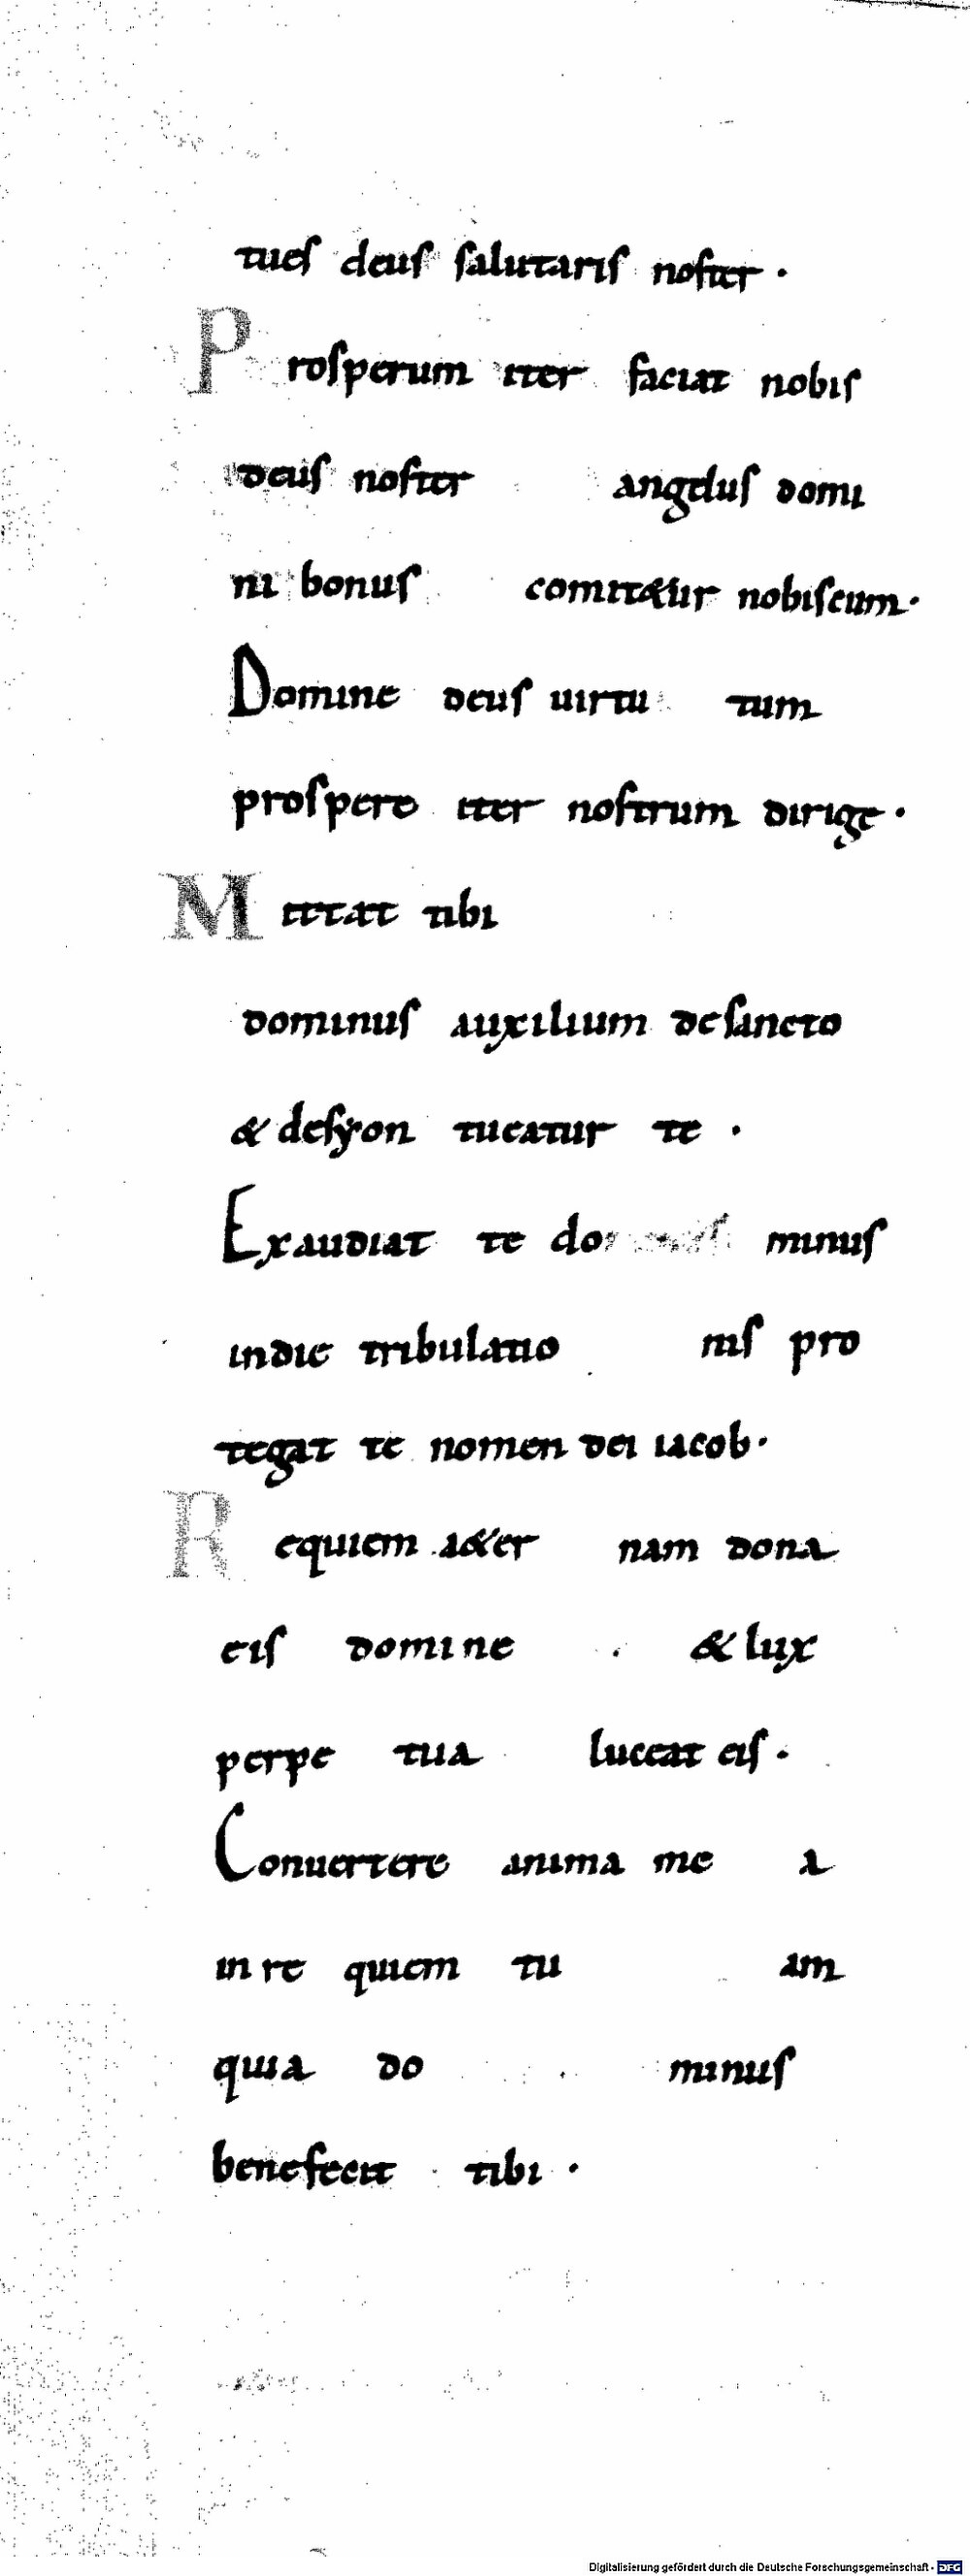 tues deus salutaris noster ·
Prosperum iter faciat nobis
deus noster angelus domi
ni bonus comit&ur nobiscum ·
Domine deus uirtu tum
prospero iter nostrum dirige ·
Mittat tibi
dominus auxilium desancto
& desyon tueatur te ·
Exaudiat te do minus
indie tribulatio nis pro
tegat te nomen dei iacob ·
Requiem a&er nam dona
eis domine & lux
perpe tua luceat eis ·
Conuertere anima me a
in re quiem tu am
quia do minus
benefecit tibi ·
Digitalisierung gefördert durch die Deutsche Forschungsgemeinschaft - DFG